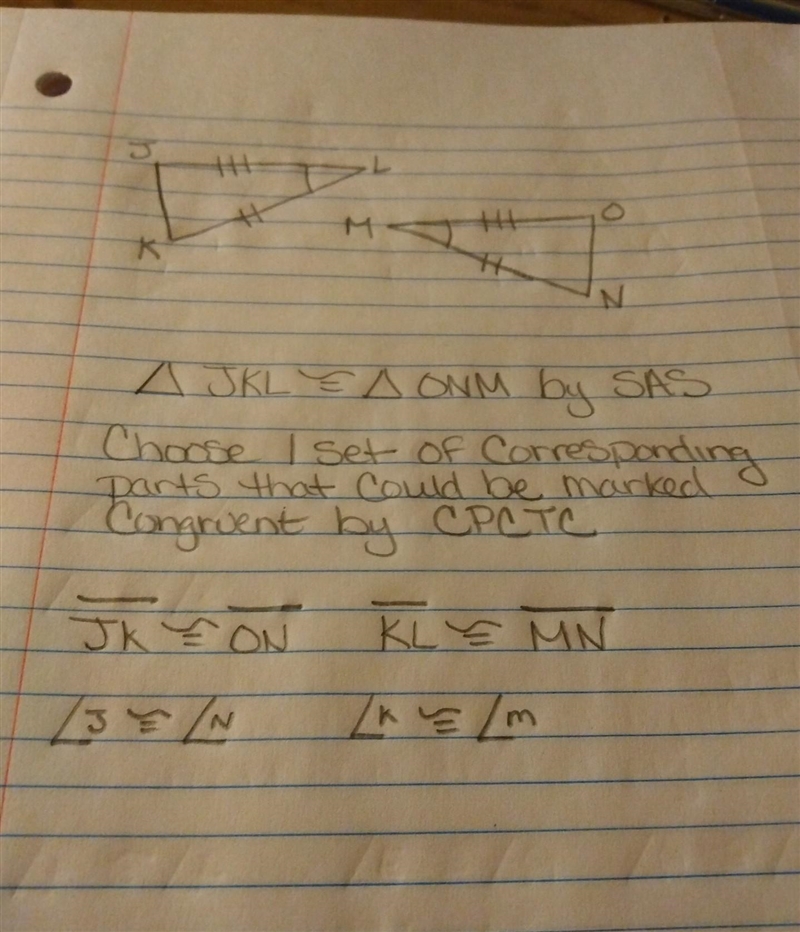 J L
K
M O
N
△ JKL ≅ △ ONM by SAS
Choose 1 set of corresponding
parts that could be marked
Congruent by CPCTC
J͞K ≅ O͞N K͞L ≅ M͞N
∠J ≅ ∠N ∠K ≅ ∠m